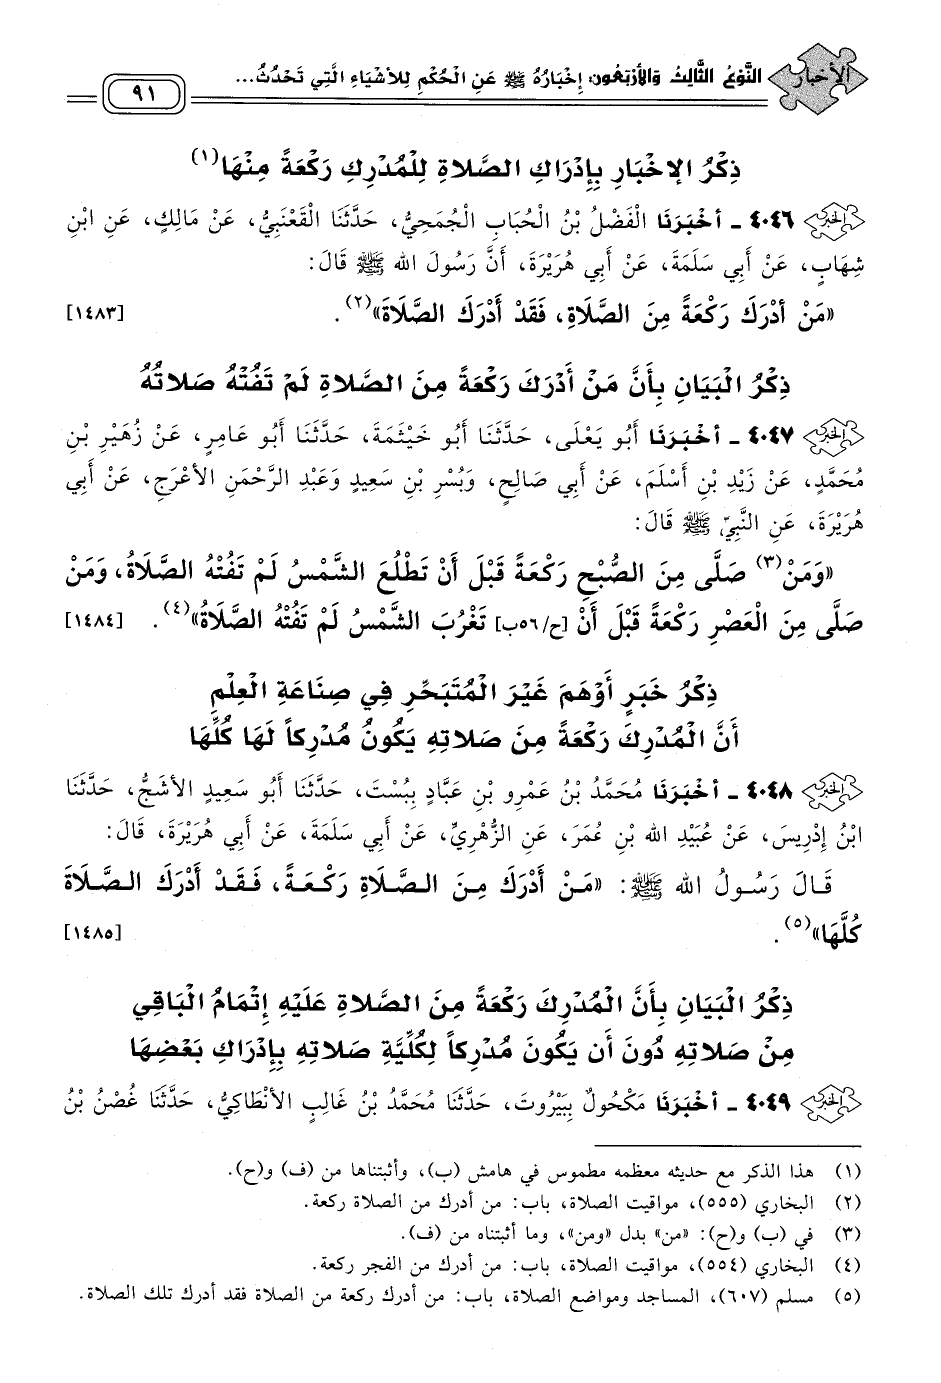 الأخبار
النَّوْعُ الثَّالِثُ وَالأَرْبَعُونَ: إِخْبَارُهُ ﷺ عَنِ الْحُكْمِ لِلأَشْيَاءِ الَّتِي تَحْدُثُ...
٩١
ذِكْرُ الإِخْبَارِ بِإِدْرَاكِ الصَّلاةِ لِلْمُدْرِكِ رَكْعَةً مِنْهَا(١)
٤٠٤٦ - أَخْبَرَنَا الْفَضْلُ بْنُ الْحُبَابِ الْجُمَحِيُّ، حَدَّثَنَا الْقَعْنَبِيُّ، عَنْ مَالِكٍ، عَنِ ابْنِ
شِهَابٍ، عَنْ أَبِي سَلَمَةَ، عَنْ أَبِي هُرَيْرَةَ، أَنَّ رَسُولَ الله ﷺ قَالَ:
«مَنْ أَدْرَكَ رَكْعَةً مِنَ الصَّلاةِ، فَقَدْ أَدْرَكَ الصَّلاةَ»(٢). [١٤٨٣]
ذِكْرُ الْبَيَانِ بِأَنَّ مَنْ أَدْرَكَ رَكْعَةً مِنَ الصَّلاةِ لَمْ تَفُتْهُ صَلاتُهُ
٤٠٤٧ - أَخْبَرَنَا أَبُو يَعْلَى، حَدَّثَنَا أَبُو خَيْثَمَةَ، حَدَّثَنَا أَبُو عَامِرٍ، عَنْ زُهَيْرِ بْنِ
مُحَمَّدٍ، عَنْ زَيْدِ بْنِ أَسْلَمَ، عَنْ أَبِي صَالِحٍ، وَبُسْرِ بْنِ سَعِيدٍ وَعَبْدِ الرَّحْمَنِ الأَعْرَجِ، عَنْ أَبِي
هُرَيْرَةَ، عَنِ النَّبِيِّ ﷺ قَالَ:
«وَمَنْ(٣) صَلَّى مِنَ الصُّبْحِ رَكْعَةً قَبْلَ أَنْ تَطْلُعَ الشَّمْسُ لَمْ تَفُتْهُ الصَّلَاةُ، وَمَنْ
صَلَّى مِنَ الْعَصْرِ رَكْعَةً قَبْلَ أَنْ [ح/٥٦ب] تَغْرُبَ الشَّمْسُ لَمْ تَفُتْهُ الصَّلاةُ»(٤). [١٤٨٤]
ذِكْرُ خَبَرٍ أَوْهَمَ غَيْرَ الْمُتَبَحِّرِ فِي صِنَاعَةِ الْعِلْمِ
أَنَّ الْمُدْرِكَ رَكْعَةً مِنَ صَلاتِهِ يَكُونُ مُدْرِكاً لَهَا كُلِّهَا
٤٠٤٨ - أَخْبَرَنَا مُحَمَّدُ بْنُ عَمْرِو بْنِ عَبَّادٍ بِبُسْتَ، حَدَّثَنَا أَبُو سَعِيدٍ الأَشَجُّ، حَدَّثَنَا
ابْنُ إِدْرِيسَ، عَنْ عُبَيْدِ الله بْنِ عُمَرَ، عَنِ الزُّهْرِيِّ، عَنْ أَبِي سَلَمَةَ، عَنْ أَبِي هُرَيْرَةَ، قَالَ:
قَالَ رَسُولُ الله ﷺ: «مَنْ أَدْرَكَ مِنَ الصَّلاةِ رَكْعَةً، فَقَدْ أَدْرَكَ الصَّلَاةَ
كُلَّهَا»(٥). [١٤٨٥]
ذِكْرُ الْبَيَانِ بِأَنَّ الْمُدْرِكَ رَكْعَةً مِنَ الصَّلاةِ عَلَيْهِ إِتْمَامُ الْبَاقِي
مِنْ صَلاتِهِ دُونَ أَن يَكُونَ مُدْرِكاً لِكُلِّيَّةِ صَلاتِهِ بِإِدْرَاكِ بَعْضِهَا
٤٠٤٩ - أَخْبَرَنَا مَكْحُولٌ بِبَيْرُوتَ، حَدَّثَنَا مُحَمَّدُ بْنُ غَالِبٍ الأَنْطَاكِيُّ، حَدَّثَنَا غُصْنُ بْنُ
(١) هذا الذكر مع حديثه معظمه مطموس في هامش (ب)، وأثبتناها من (ف) و(ح).
(٢) البخاري (٥٥٥)، مواقيت الصلاة، باب: من أدرك من الصلاة ركعة.
(٣) في (ب) و(ح): «من» بدل «ومن»، وما أثبتناه من (ف).
(٤) البخاري (٥٥٤)، مواقيت الصلاة، باب: من أدرك من الفجر ركعة.
(٥) مسلم (٦٠٧)، المساجد ومواضع الصلاة، باب: من أدرك ركعة من الصلاة فقد أدرك تلك الصلاة.